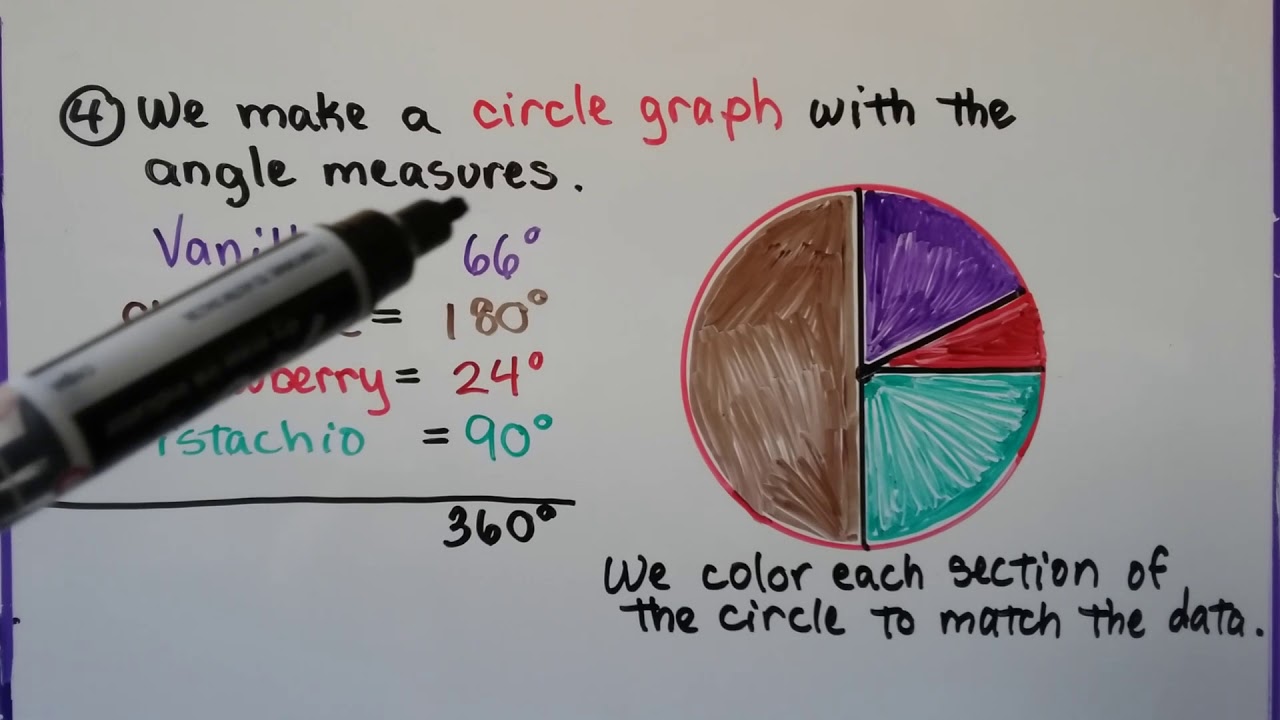 ④ We make a circle graph with the
angle measures.
66°
= 180°
= 24°
= 90°
360°
We color each section of
the circle to match the data.